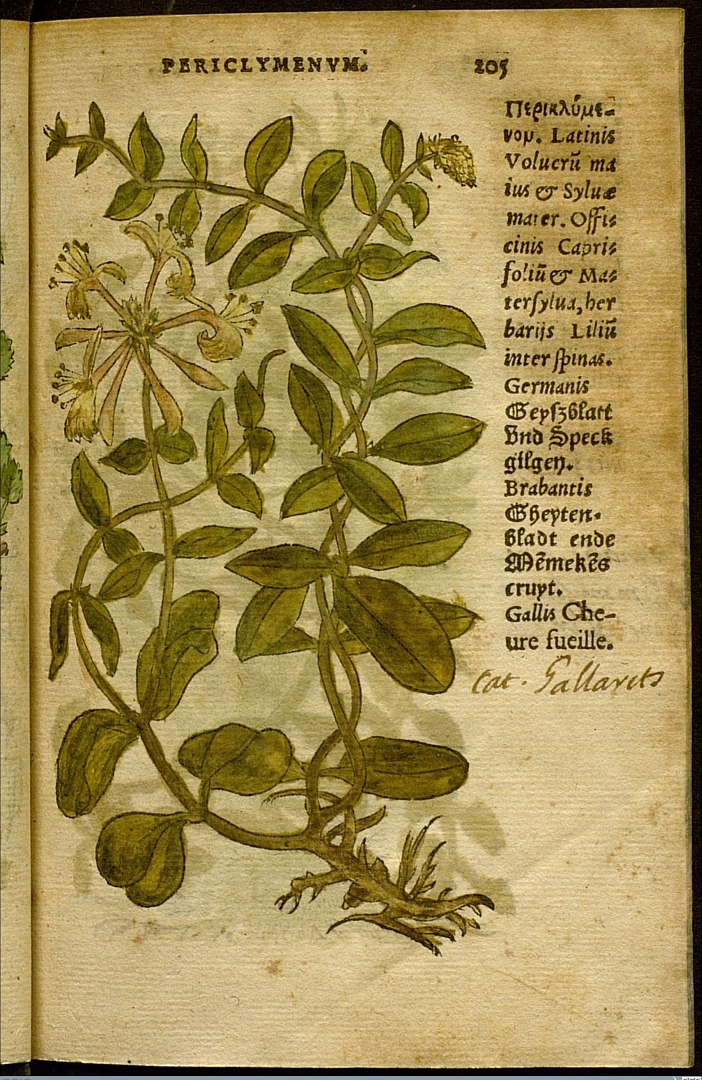 PERICLYMENVM. 205
Περικλύμε-
νομ. Latinis
Volucrũ ma
ius & Syluæ
mater. Offi⸗
cinis Capri⸗
foliũ & Ma⸗
tersylua, her
barijs Liliũ
inter spinas.
Germanis
Geyſzblatt
vnd Speck
gilgen.
Brabantis
Gheyten-
bladt ende
Mẽmekẽs
cruyt.
Gallis Che-
ure fueille.
Cat. Gallarets